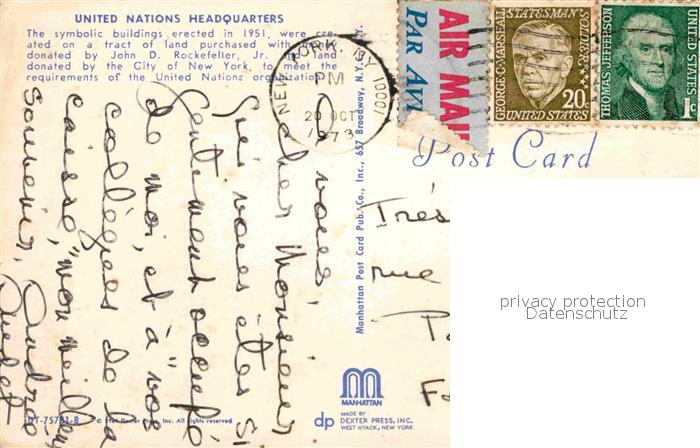 UNITED NATIONS HEADQUARTERS
The symbolic buildings erected in 1951, were cre-
ated on a tract of land purchased with
donated by John D. Rockefeller, Jr. land
donated by the City of New York, to meet the
requirements of the United Nations organization.
NEW YORK, NY 10001
PM
20 OCT
1973
AIR MAIL
PAR AVI
GEORGE C. MARSHALL
STATESMAN
SOLDIER
20c
UNITED STATES
THOMAS JEFFERSON
UNITED STATES
1c
Post Card
À vous,
cher Monsieur
qui vous êtes si
gentiment occupé
de moi, et à "vos
collègues de la
caisse," mon meilleur
souvenir,
Andrée
Très
rue
Fa
Manhattan Post Card Pub. Co., Inc., 657 Broadway, N.Y.C., N.Y.
MANHATTAN
dp
MADE BY
DEXTER PRESS, INC.
WEST NYACK, NEW YORK
DT-75781-B
Dexter Press, Inc. All rights reserved
privacy protection
Datenschutz